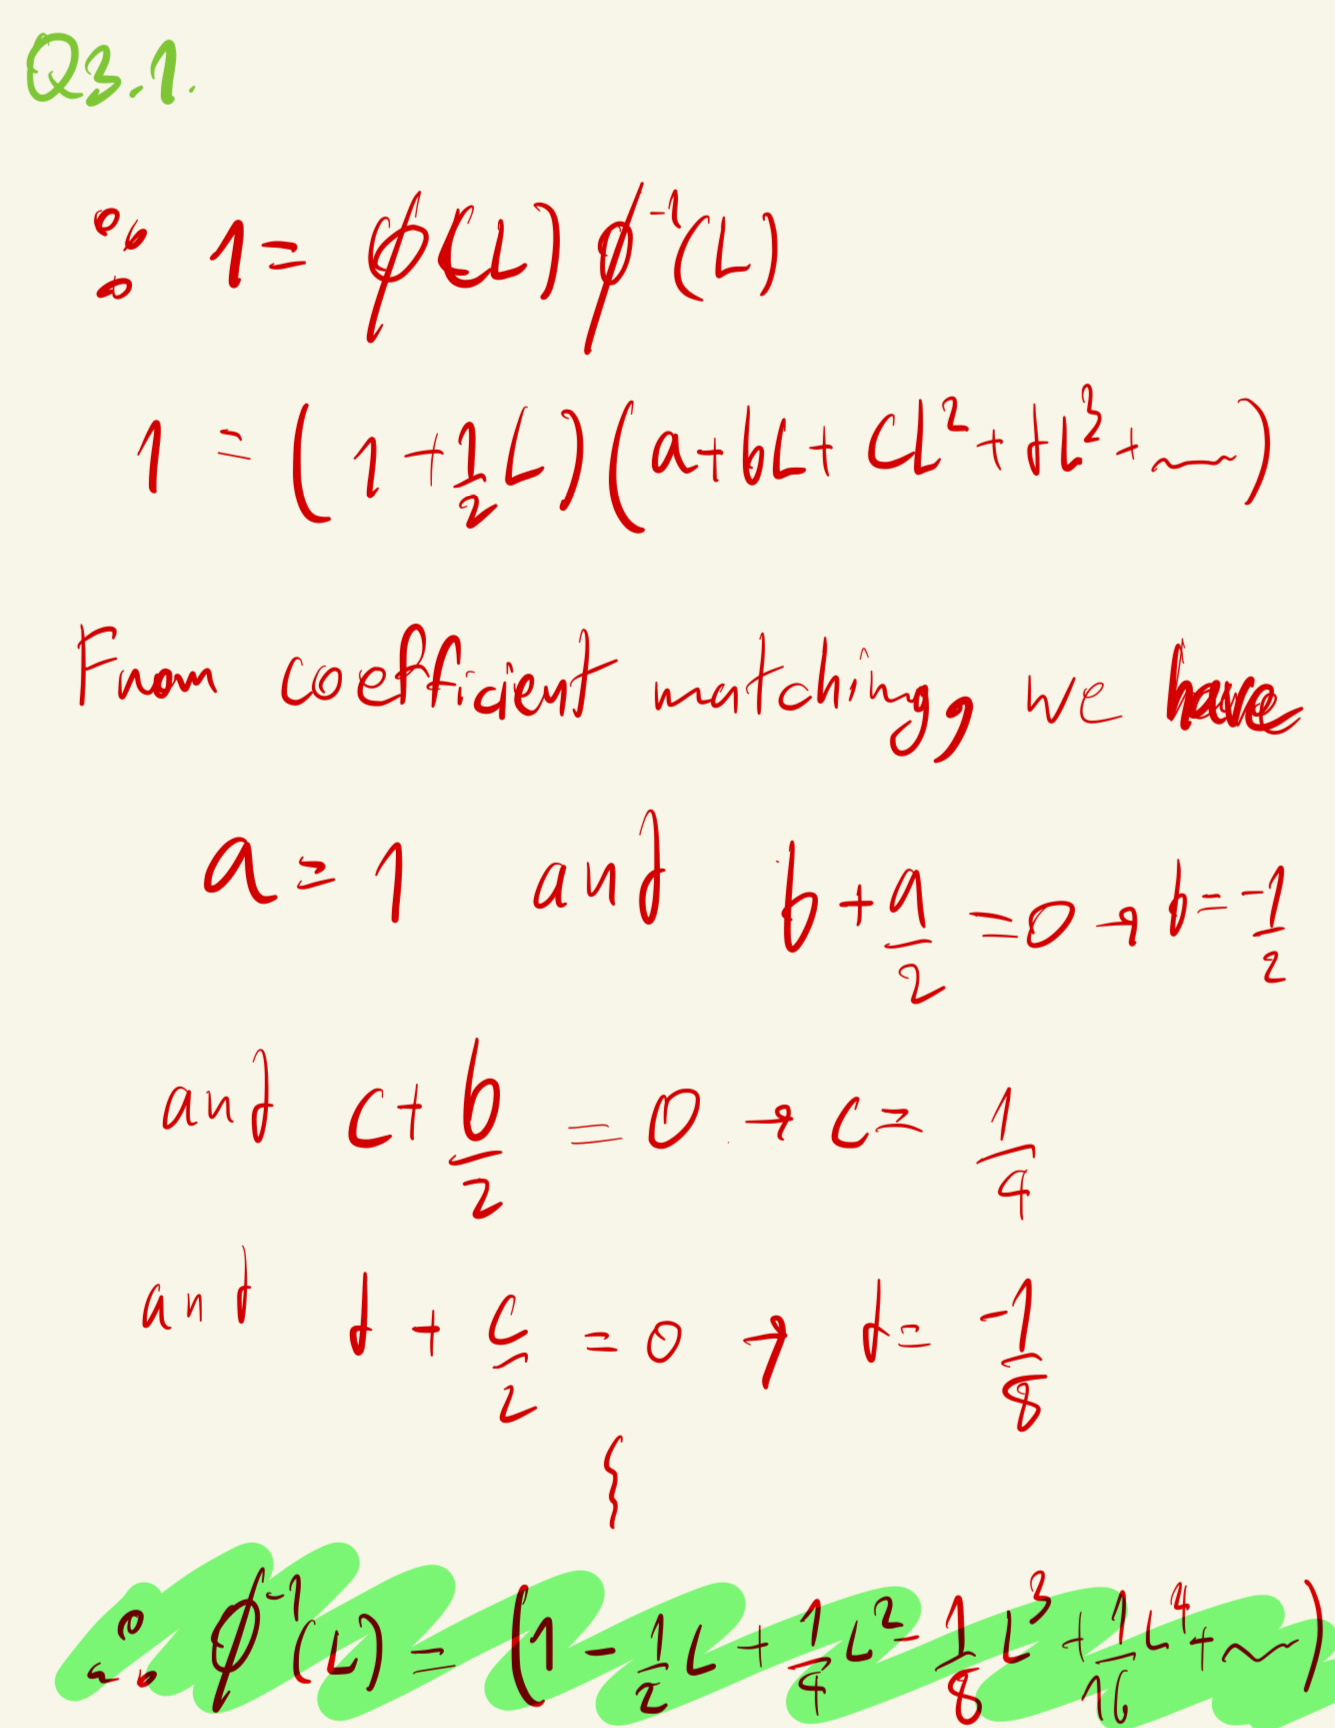 Q3.1.
∴ 1 = ϕ(L) ϕ⁻¹(L)
1 = (1 + 1/2 L)(a + bL + cL² + dL³ + ~)
From coefficient matching, we have
a = 1 and b + a/2 = 0 → b = -1/2
and c + b/2 = 0 → c = 1/4
and d + c/2 = 0 → d = -1/8
∴ ϕ⁻¹(L) = (1 - 1/2 L + 1/4 L² - 1/8 L³ + 1/16 L⁴ + ~)